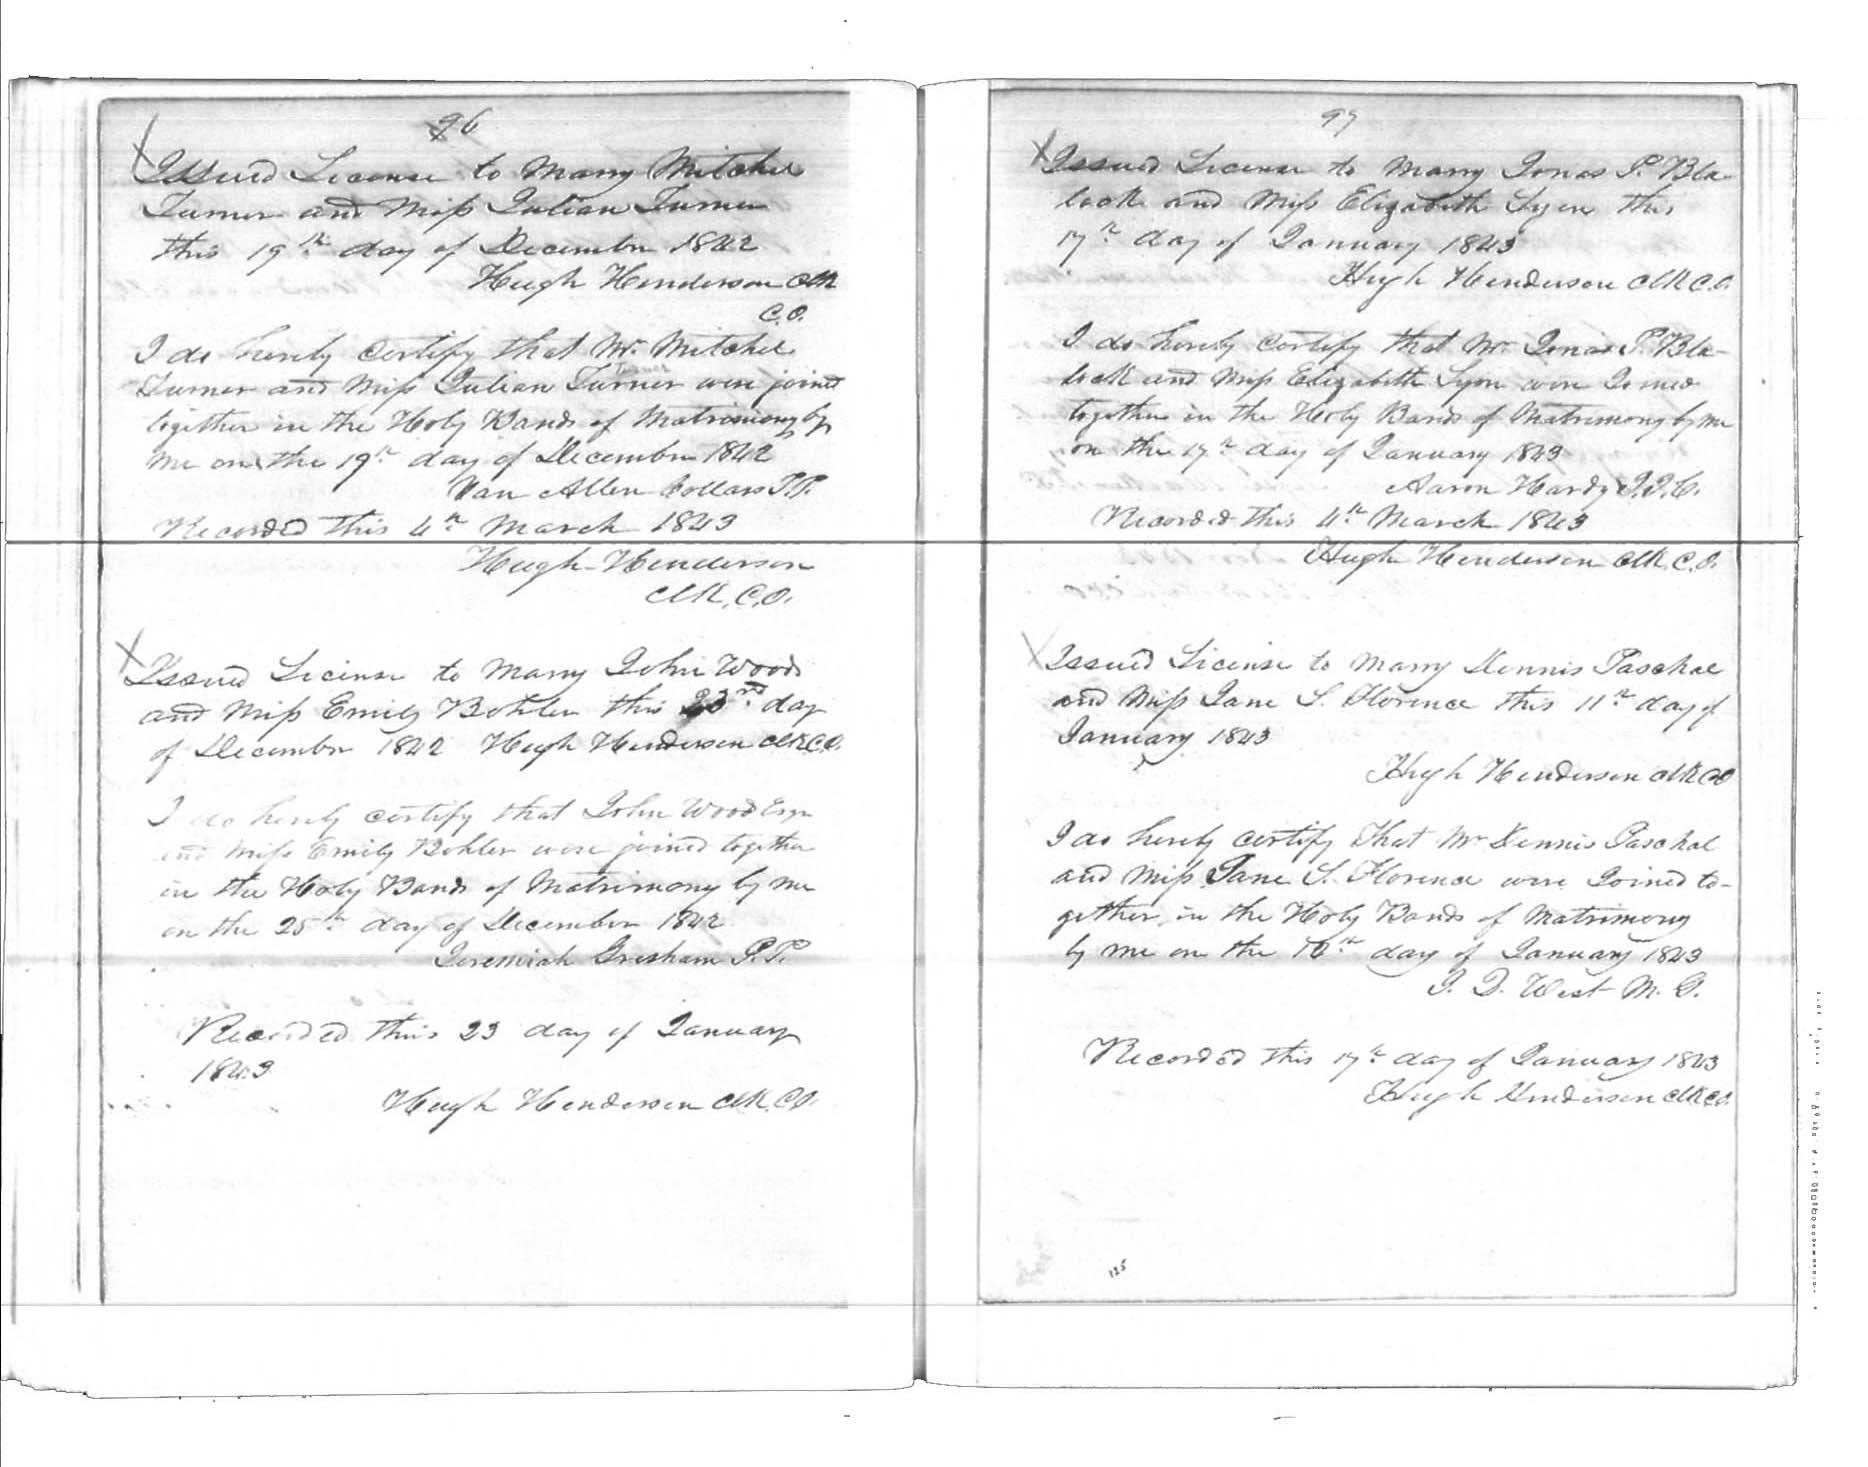 96
Issued License to Marry Mitchel
Turner and Miss Julian Turner
this 19th day of December 1842
Hugh Henderson Clk
C.O.
I do hereby certify that Mr. Mitchel
Turner and Miss Julian Turner were joined
together in the Holy Bands of Matrimony by
me on the 19th day of December 1842
Van Allen Collars J.P.
Recorded this 4th March 1843
Hugh Henderson
Clk, C.O.
Issued License to Marry John Wood
and Miss Emily Bohler this 23rd day
of December 1842 Hugh Henderson Clk C.O.
I do hereby certify that John Wood Esqr
and Miss Emily Bohler were joined together
in the Holy Bands of Matrimony by me
on the 25th day of December 1842
Jeremiah Gresham J.P.
Recorded this 23 day of January
1843
Hugh Henderson Clk, C.O.
97
Issued License to Marry Jonas P. Bla-
lock and Miss Elizabeth Lyon this
17th day of January 1843
Hugh Henderson Clk C.O.
I do hereby certify that Mr Jonas P. Bla-
lock and Miss Elizabeth Lyon were Joined
together in the Holy Bands of Matrimony by me
on the 17th day of January 1843
Aaron Hardy J.I.C.
Recorded this 4th March 1843
Hugh Henderson Clk, C.O.
Issued License to Marry Dennis Paschal
and Miss Jane S. Florence this 11th day of
January 1843
Hugh Henderson Clk CO
I do hereby certify that Mr Dennis Paschal
and Miss Jane S. Florence were Joined to-
gether in the Holy Bands of Matrimony
by me on the 12th day of January 1843
J. Q. West M. G.
Recorded this 17th day of January 1843
Hugh Henderson Clk C.O.
125